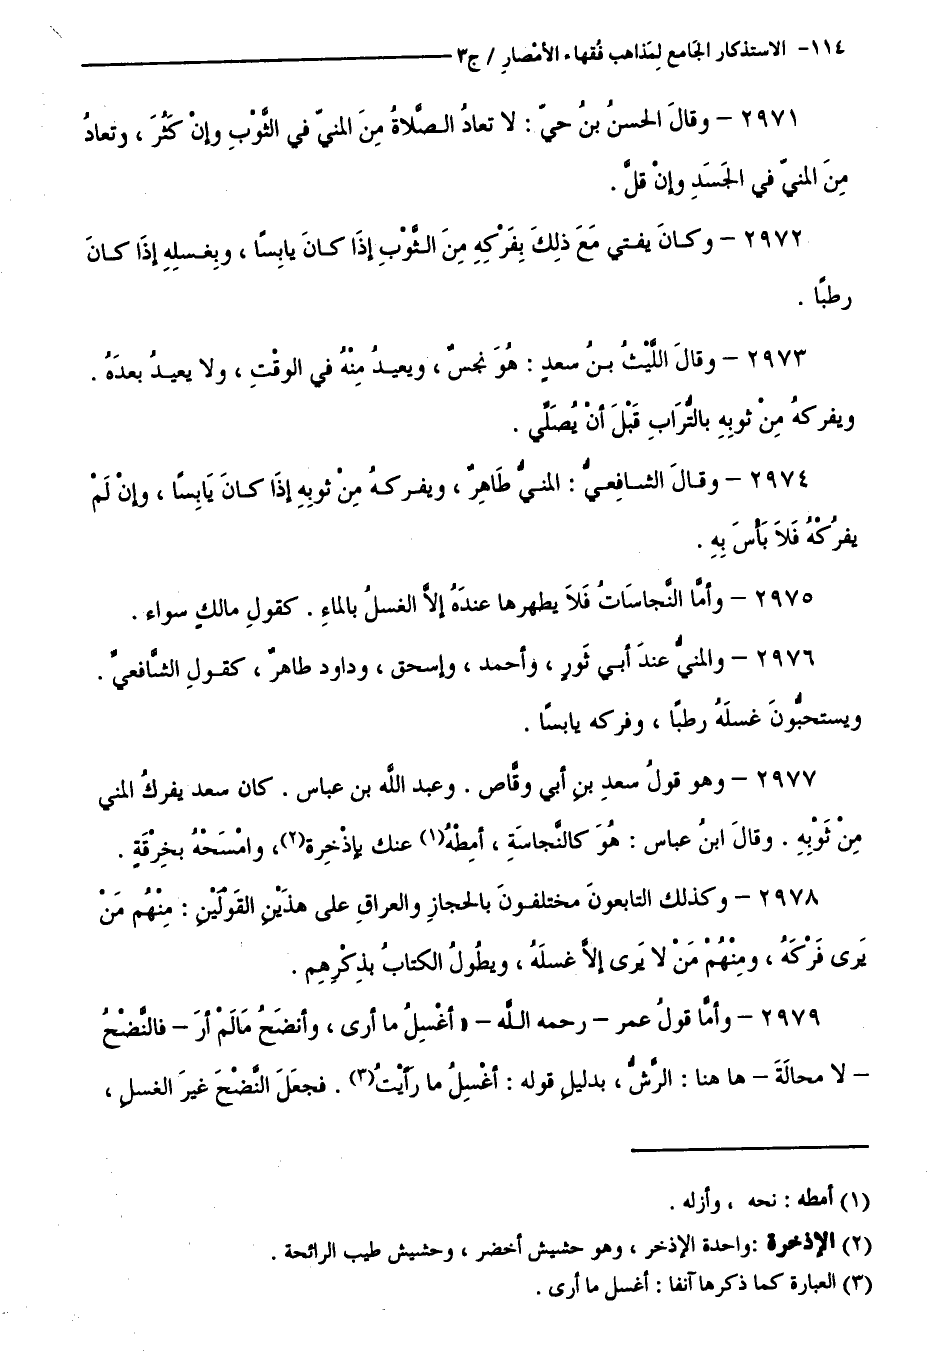 ١١٤- الاستذكار الجَامع لِمَذاهب فُقهاء الأمْصارِ / ج٣
٢٩٧١ – وقالَ الحسنُ بنُ حيّ : لا تعادُ الصَّلاةُ مِنَ المنيّ في الثَّوْبِ وإنْ كَثُرَ ، وتعادُ
مِنَ المنيّ في الجَسَدِ وإنْ قلَّ .
٢٩٧٢ – وكانَ يفتي مَعَ ذلِكَ بِفَرْكِهِ مِنَ الثَّوْبِ إذَا كانَ يابِسًا ، وبِغسلِهِ إذَا كانَ
رطبًا .
٢٩٧٣ – وقالَ اللَّيْثُ بنُ سعدٍ : هُوَ نجسٌ ، ويعيدُ مِنْهُ في الوقْتِ ، ولا يعيدُ بعدَهُ .
ويفركهُ مِنْ ثوبِهِ بالتُّرَابِ قَبْلَ أنْ يُصَلِّي .
٢٩٧٤ – وقالَ الشافِعيُّ : المنيُّ طَاهِرٌ ، ويفركهُ مِنْ ثوبِهِ إذَا كانَ يَابِسًا ، وإنْ لَمْ
يفرُكْهُ فَلاَ بَأْسَ بِهِ .
٢٩٧٥ – وأمَّا النَّجاسَاتُ فَلاَ يطهرها عندَهُ إلاَّ الغسلُ بالماءِ . كقولِ مالكٍ سواء .
٢٩٧٦ – والمنيُّ عندَ أبي ثَورٍ ، وأحمد ، وإسحق ، وداود طاهرٌ ، كقولِ الشَّافعيِّ .
ويستحبُّونَ غسلَهُ رطبًا ، وفركه يابسًا .
٢٩٧٧ – وهو قولُ سعدِ بنِ أبي وقَّاص . وعبد اللَّه بن عباس . كان سعد يفركُ المني
مِنْ ثَوْبِهِ . وقالَ ابنُ عباس : هُوَ كالنَّجاسَةِ ، أمِطْهُ(١) عنك بإذْخِرة(٢)، وامْسَحْهُ بخِرْقَةٍ .
٢٩٧٨ – وكذلك التابعونَ مختلفونَ بالحجازِ والعراقِ على هذَيْنِ القَولَيْنِ : مِنْهُم مَنْ
يَرى فَرْكَهُ ، ومِنْهُمْ مَنْ لا يَرى إلاَّ غسلَهُ ، ويطُولُ الكتابُ بذِكْرِهِم .
٢٩٧٩ – وأمَّا قولُ عمر – رحمه اللَّه – « أغْسِلُ ما أرى ، وأنضَحُ مَالَمْ أرَ – فالنَّضْحُ
– لا محالَةَ – ها هنا : الرَّشُّ ، بدليلِ قوله : أغْسِلُ ما رَأَيْتُ(٣) . فجعَلَ النَّضْحَ غيرَ الغسلِ ،
(١) أمطه : نحه ، وأزله .
(٢) الإذخرة :واحدة الإذخر ، وهو حشيش أخضر ، وحشيش طيب الرائحة .
(٣) العبارة كما ذكرها آنفا : أغسل ما أرى .